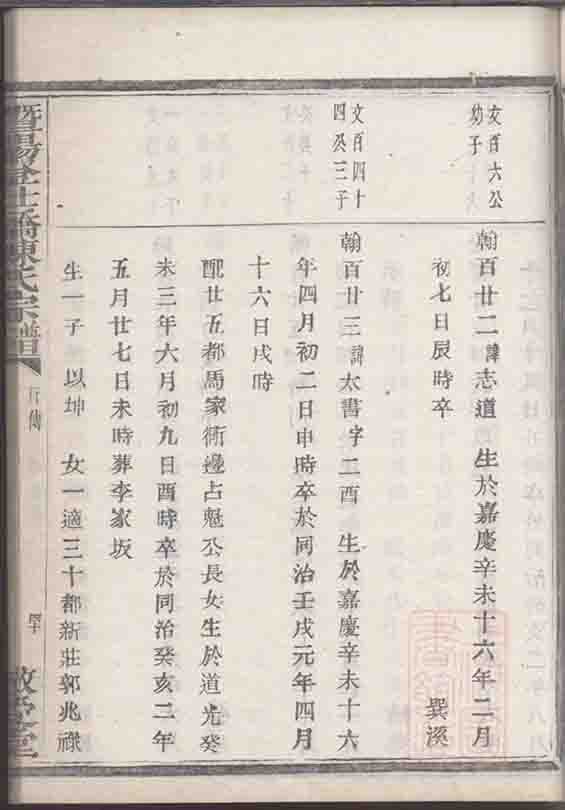 文百六公
幼子
翰百廿二諱志道 生於嘉慶辛未十六年二月
初七日辰時卒 巽溪
文百四十
四公三子
翰百廿三諱太書字二酉 生於嘉慶辛未十六
年四月初二日申時卒於同治壬戌元年四月
十六日戌時
配廿五都馬家衖邊占懸公長女生於道光癸
未三年六月初九日酉時卒於同治癸亥二年
五月廿七日未時葬李家坂
生一子 以坤 女一適三十都新莊郭兆祿
暨陽 橋陳氏宗譜
行傳